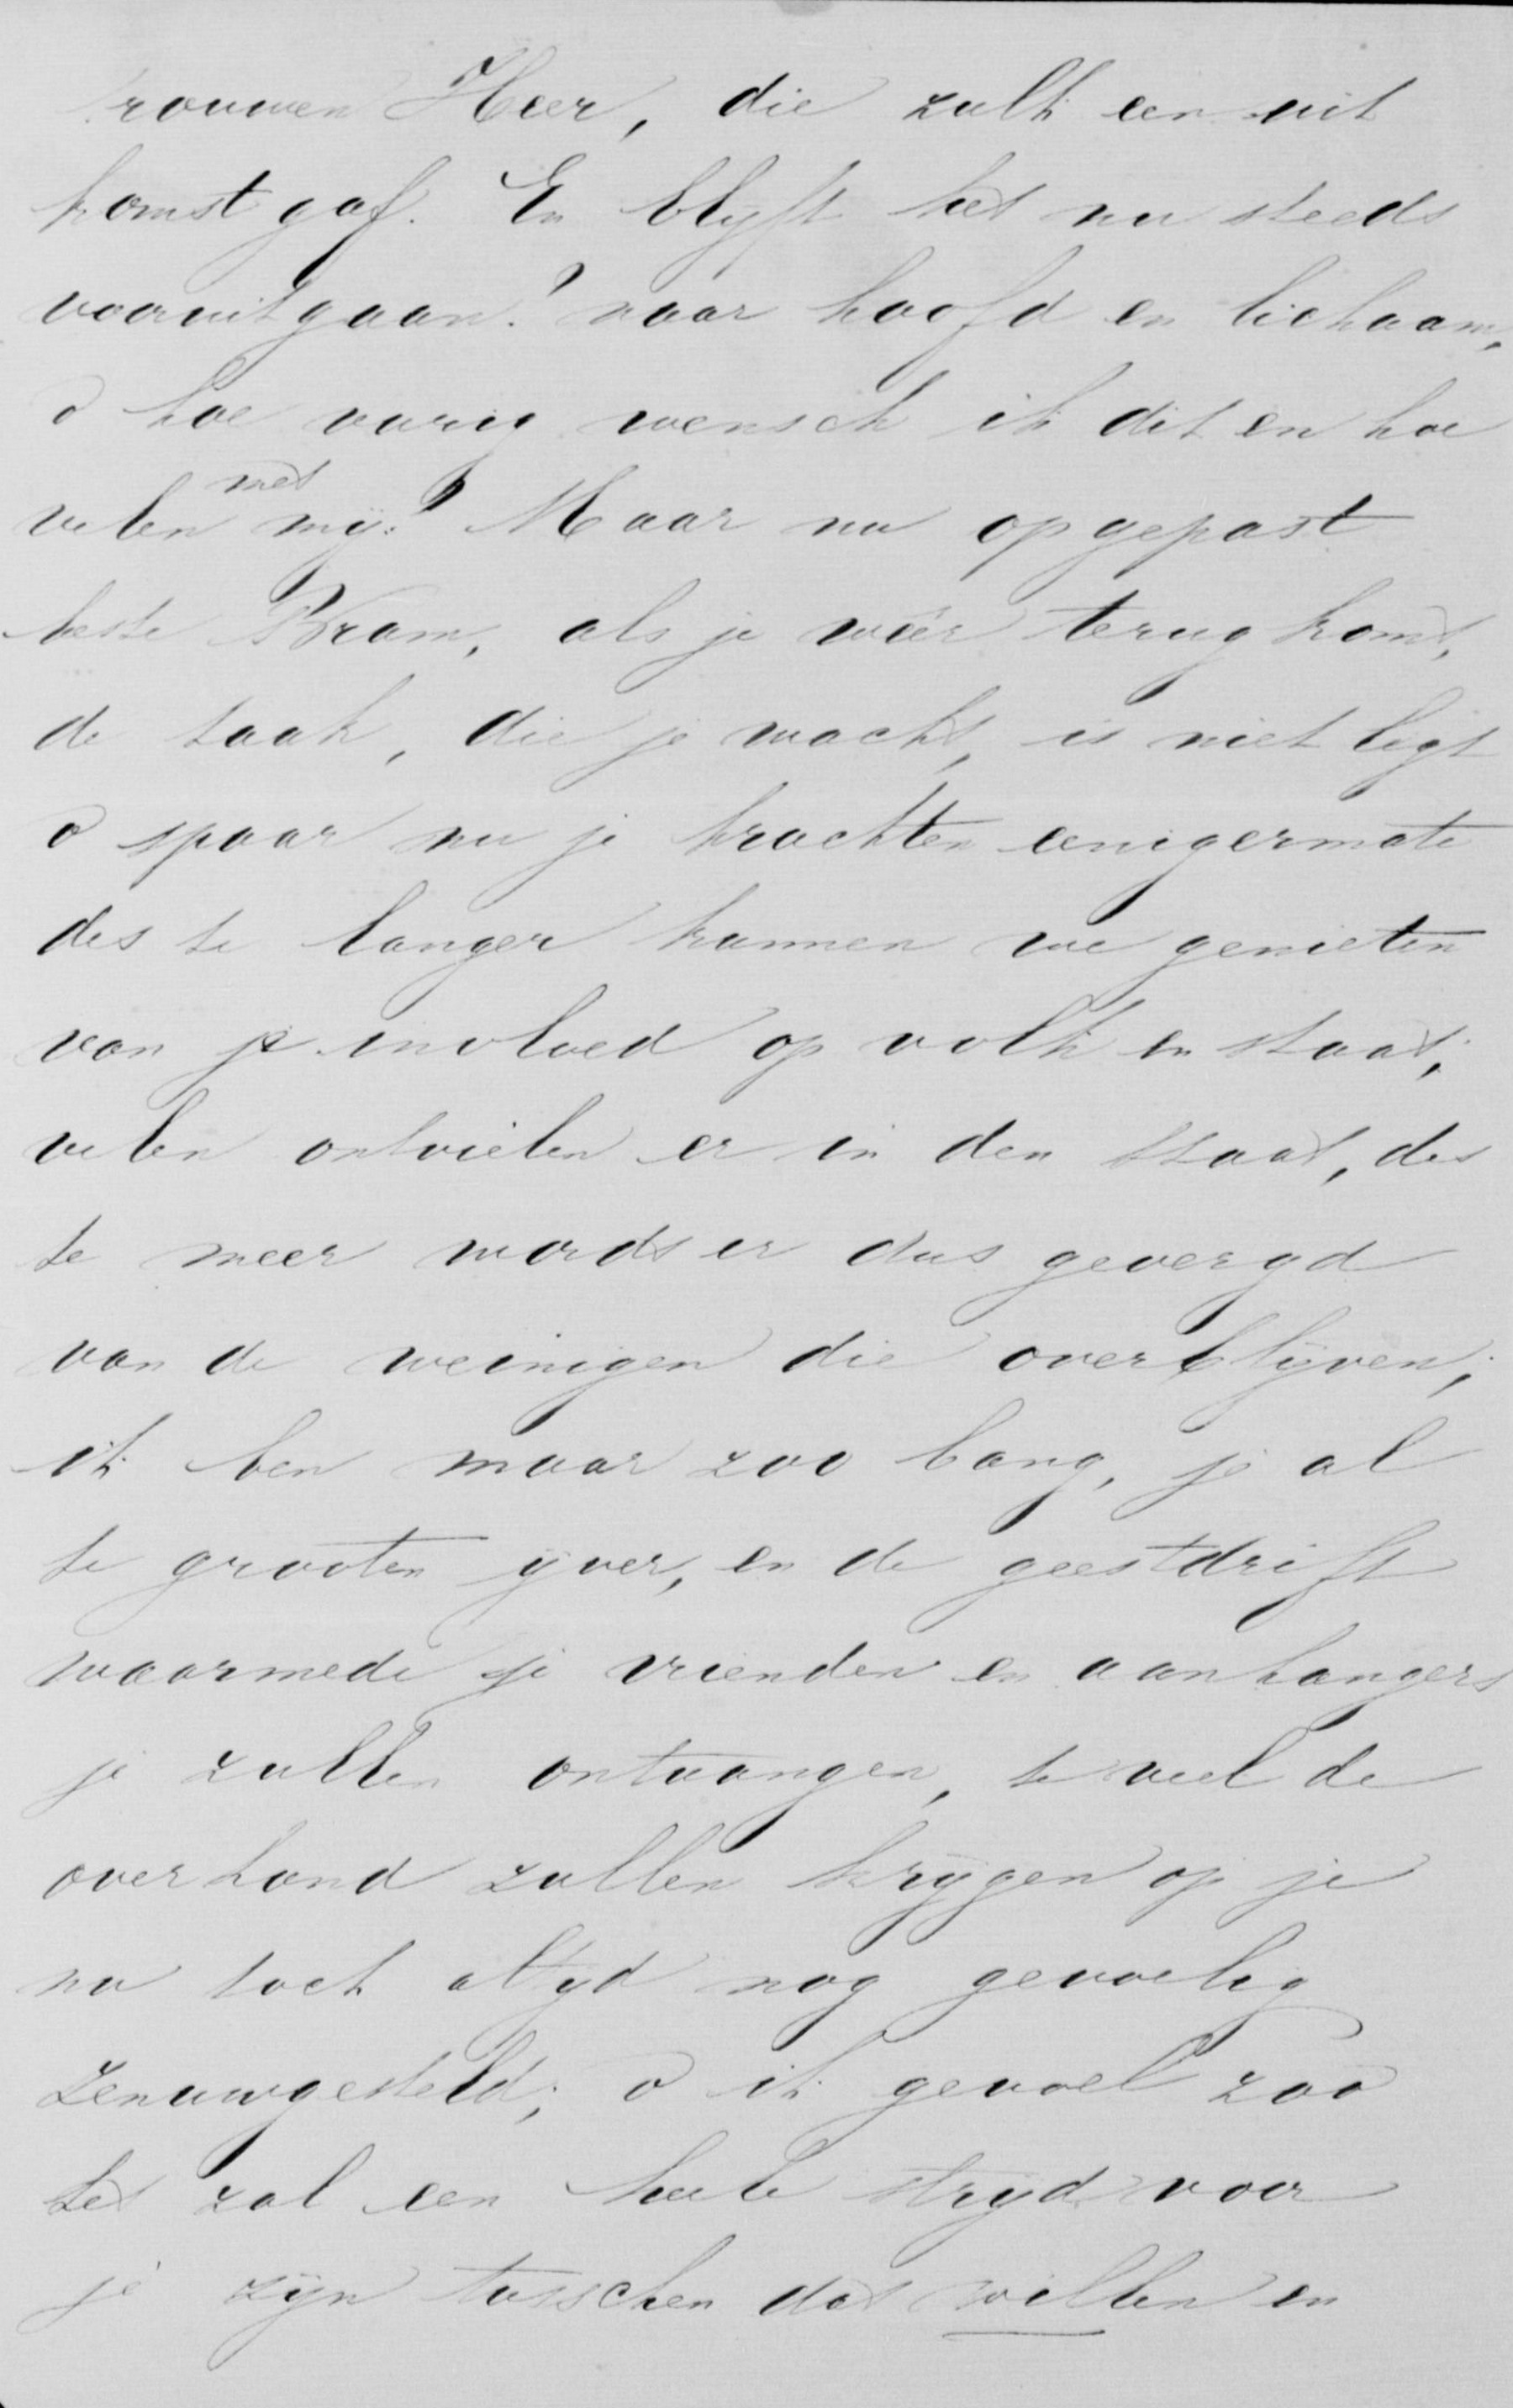 trouwen Heer, die zulk een uit
komst gaf. En blyft het nu steeds
vooruitgaan? naar hoofd en lichaam,
o hoe vurig wensch ik dit en hoe
velen met mij! Maar nu opgepast
beste Bram, als je wéér terug komt,
de taak, die je wacht, is niet ligt
o spaar nu je krachten eenigermate
des te langer kunnen we genieten
van je invloed op volk en staat;
velen ontvielen er in den staat, des
te meer wordt er dus gevergd
van de weinigen die overblijven;
ik ben maar zoo bang, je al
te grooten ijver, en de geestdrift
waarmede je vrienden en aanhangers
je zullen ontvangen, te veel de
overhand zullen krijgen op je
nu toch altyd nog gevoelig
zenuwgesteld; o ik gevoel zoo
het zal een heele strijd voor
je zijn tusschen dat willen en